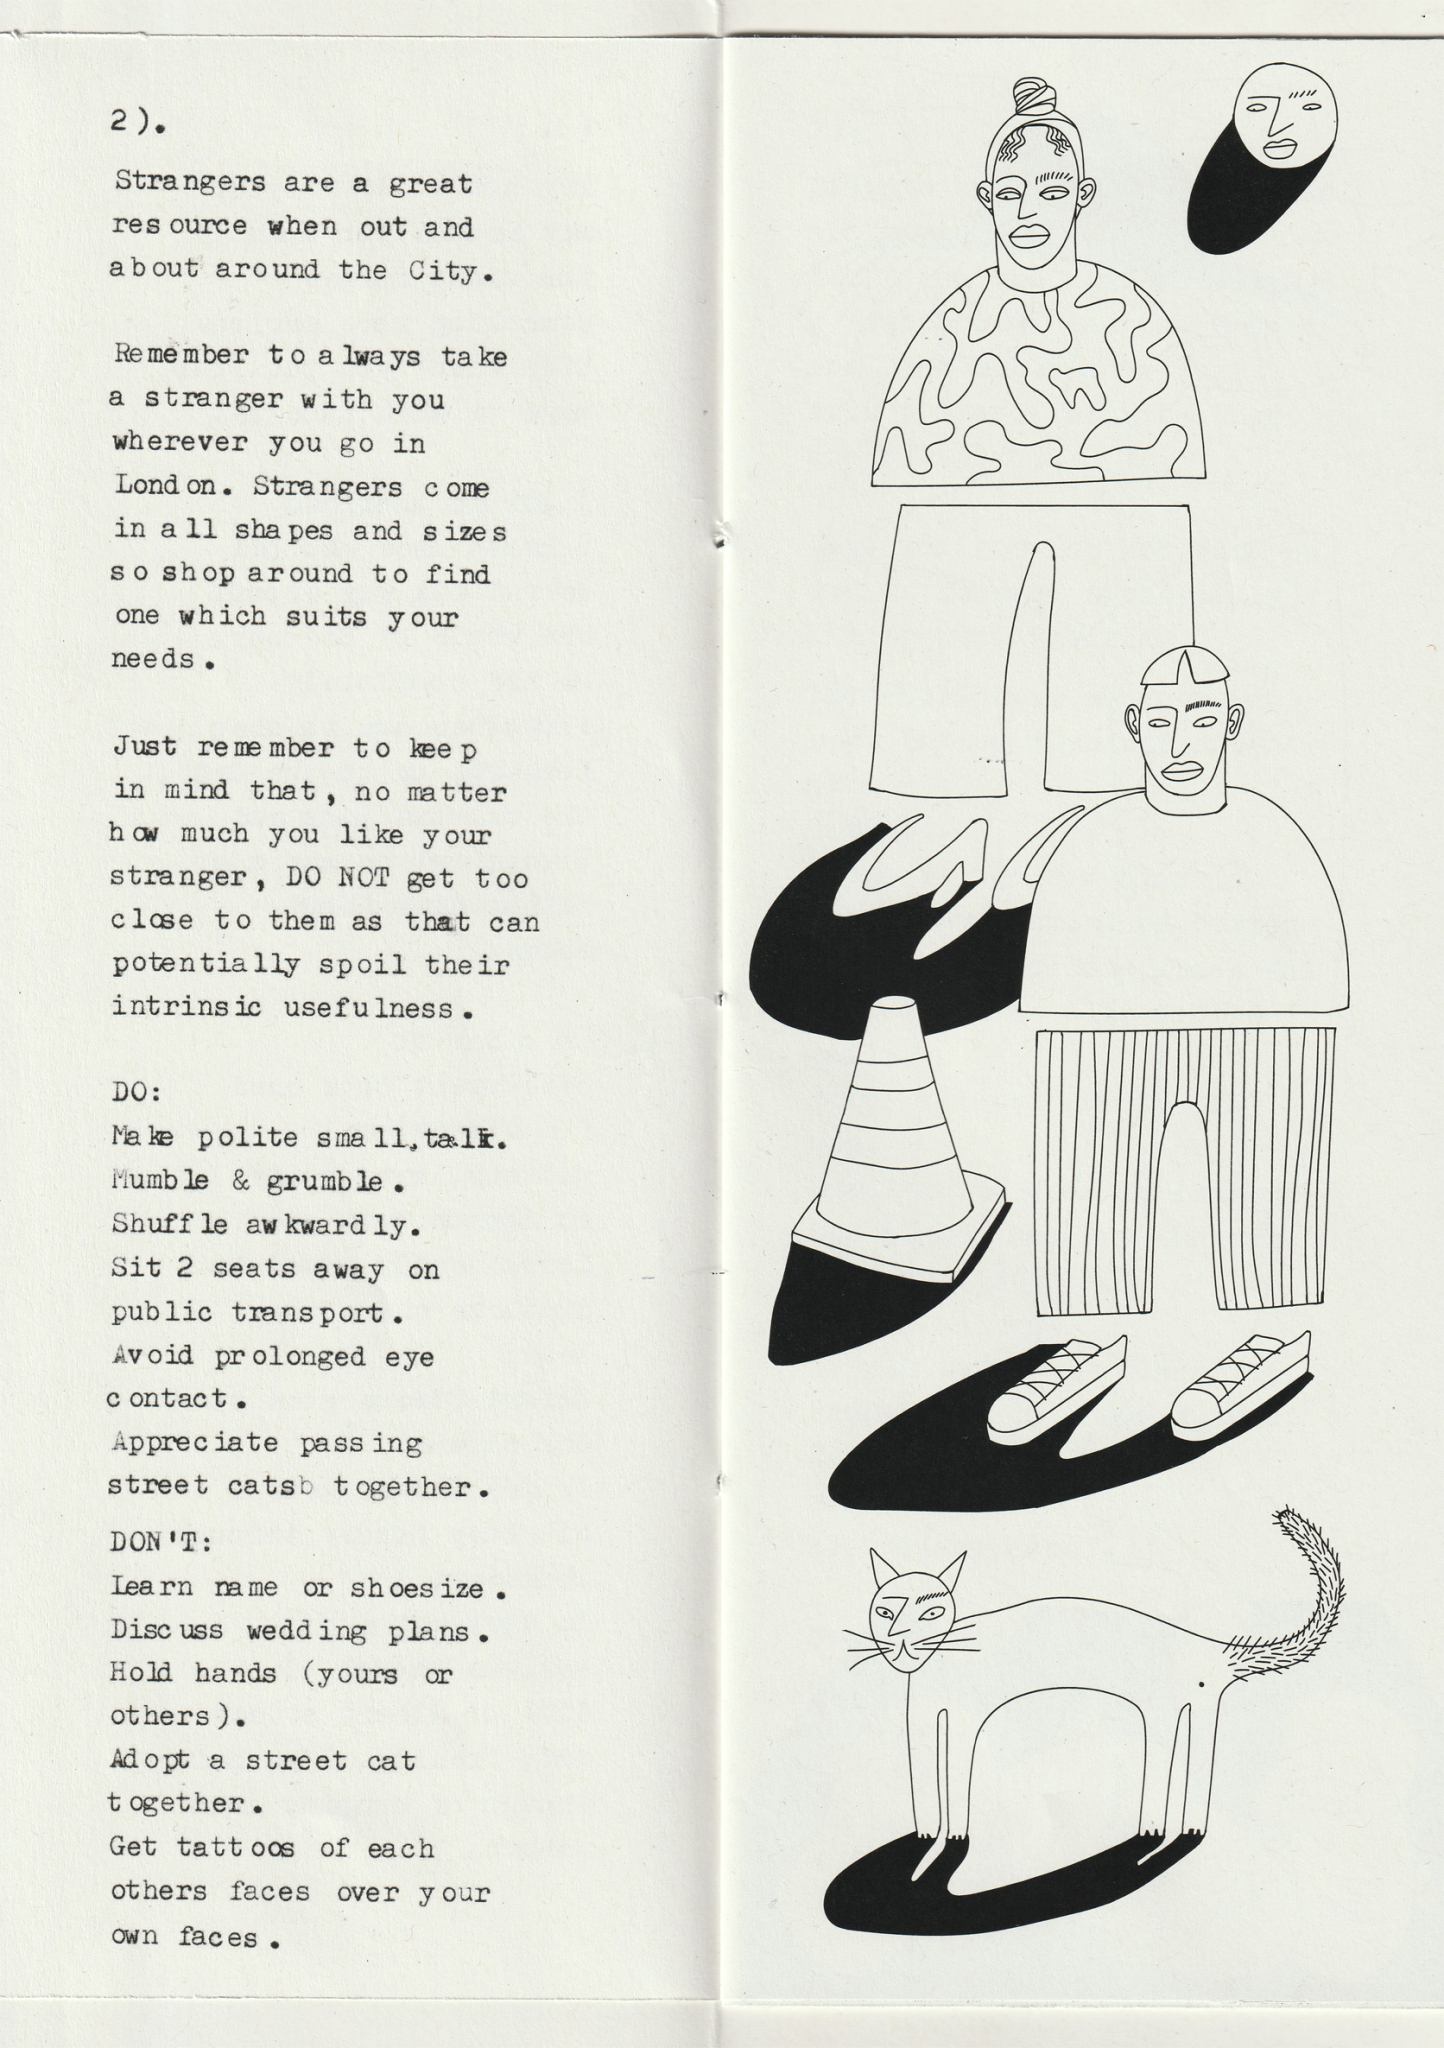 2).
Strangers are a great
resource when out and
about around the City.
Remember to always take
a stranger with you
wherever you go in
London. Strangers come
in all shapes and sizes
so shop around to find
one which suits your
needs.
Just remember to keep
in mind that, no matter
how much you like your
stranger, DO NOT get too
close to them as that can
potentially spoil their
intrinsic usefulness.
DO:
Make polite small,talk.
Mumble & grumble.
Shuffle awkwardly.
Sit 2 seats away on
public transport.
Avoid prolonged eye
contact.
Appreciate passing
street catsb together.
DON'T:
Learn name or shoesize.
Discuss wedding plans.
Hold hands (yours or
others).
Adopt a street cat
together.
Get tattoos of each
others faces over your
own faces.